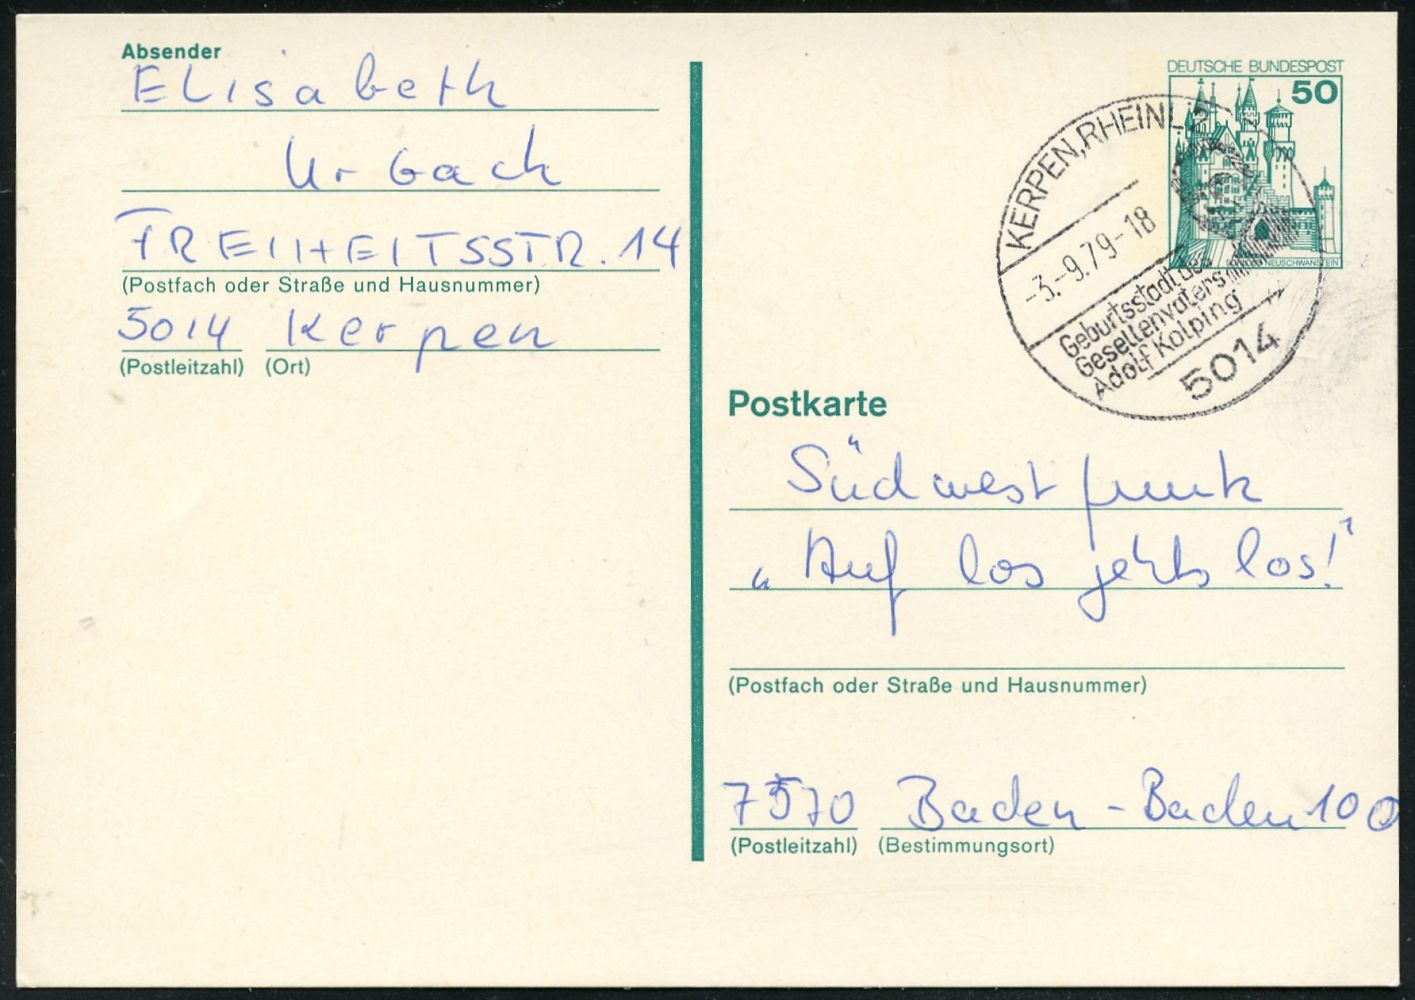 Absender
Elisabeth
Urbach
FREIHEITSSTR. 14
(Postfach oder Straße und Hausnummer)
5014 Kerpen
(Postleitzahl) (Ort)
DEUTSCHE BUNDESPOST
50
NEUSCHWANSTEIN
KERPEN, RHEINL
-3.-9.79-18
Geburtsstadt des
Gesellenvaters
Adolf Kolping
5014
Postkarte
Südwestfunk
„Auf los jehts los!"
(Postfach oder Straße und Hausnummer)
7570 Baden-Baden 100
(Postleitzahl) (Bestimmungsort)